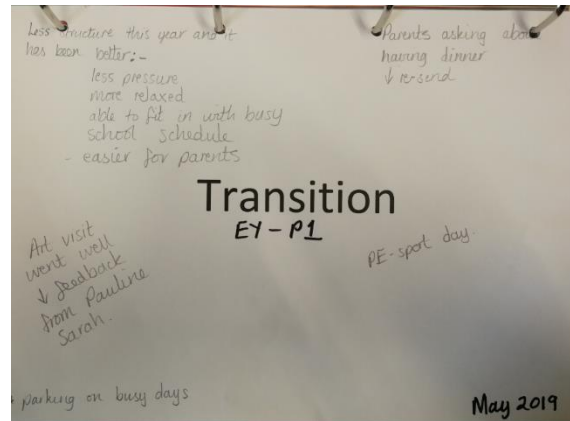 Less structure this year and it
has been better:-
less pressure
more relaxed
able to fit in with busy
school schedule
- easier for parents
Parents asking about
having dinner
↓ re-send
Transition
EY - P1
Art visit
went well
↓ feedback
from Pauline
Sarah.
PE - sport day.
parking on busy days
May 2019